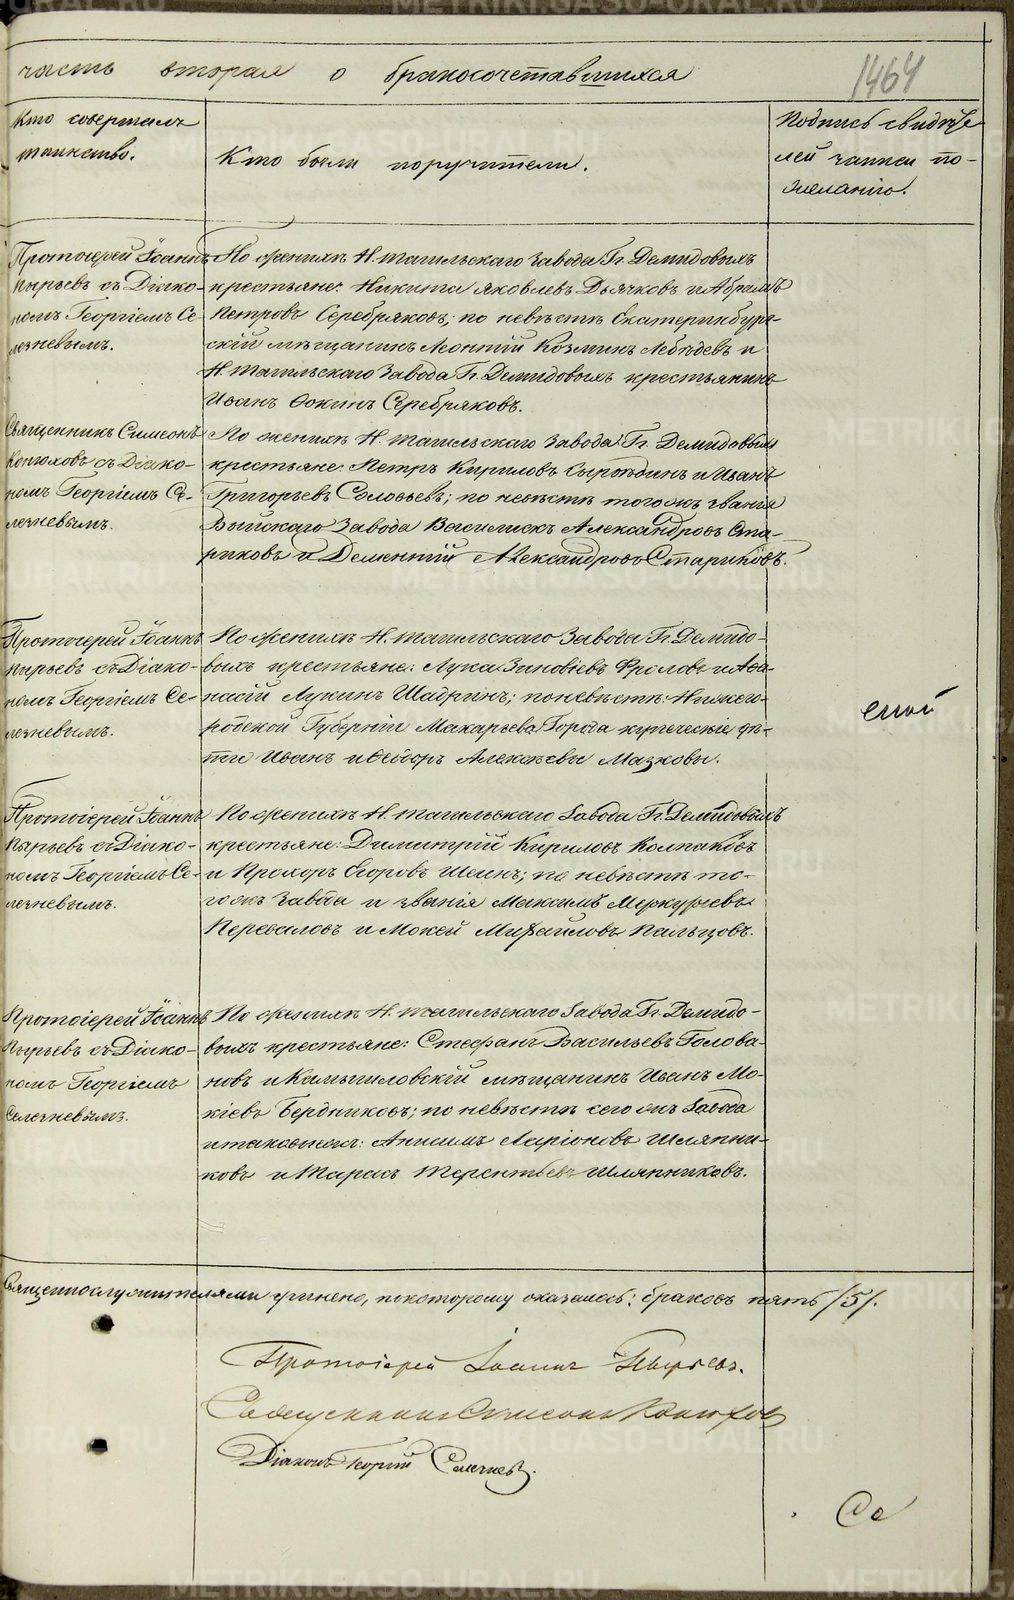 часть вторая о бракосочетавшихся
1464
Кто совершалъ
таинство.
Кто были поручители.
Подпись свидѣте
лей записи по-
желанію.
Протоіерей Іоаннъ
Пырьевъ съ Діако-
номъ Георгіемъ Се-
лезневымъ.
По женихѣ Н. Тагильскаго Завода Гг. Демидовыхъ
крестьяне: Никита Яковлевъ Дьячковъ и Абрамъ
Петровъ Серебряковъ; по невѣстѣ Екатеринбург-
скій мѣщанинъ Леонтій Козминъ Лебѣдевъ и
Н. Тагильскаго Завода Гг. Демидовыхъ крестьянинъ
Иванъ Ѳокинъ Серебряковъ.
Священникъ Симеонъ
Конюховъ съ Діако-
номъ Георгіемъ Се-
лезневымъ.
По женихѣ Н. Тагильскаго Завода Гг. Демидовыхъ
крестьяне: Петръ Кириловъ и Иванъ
Григорьевъ Соловьевъ; по невѣстѣ тогожъ званія
Выйскаго Завода Василискъ Александровъ Ста-
риковъ и Дементій Александровъ Стариковъ.
Протоіерей Іоаннъ
Пырьевъ съ Діако-
номъ Георгіемъ Се-
лезневымъ.
По женихѣ Н. Тагильскаго Завода Гг. Демидо-
выхъ крестьяне: Лука Зиновіевъ Фроловъ и Афа-
насій Лукинъ Шадринъ; по невѣстѣ: Нижего-
родской Губерніи Макарьева Города купеческіе дѣ-
ти Иванъ и Ѳедоръ Алексѣевы Мазковы.
Протоіерей Іоаннъ
Пырьевъ съ Діако-
номъ Георгіемъ Се-
лезневымъ.
По женихѣ Н. Тагильскаго Завода Гг. Демидовыхъ
крестьяне: Димитрій Кириловъ Колпаковъ
и Прохоръ Егоровъ Шеинъ; по невѣстѣ то-
гожъ Завода и званія Максимъ Меркурьевъ
Переваловъ и Мокей Михайловъ Пальцовъ.
Протоіерей Іоаннъ
Пырьевъ съ Діако-
номъ Георгіемъ
Селезневымъ.
По женихѣ Н. Тагильскаго Завода Гг. Демидо-
выхъ крестьяне: Стефанъ Васильевъ Голова-
новъ и Камышловскій мѣщанинъ Иванъ Мо-
кіевъ Бердниковъ; по невѣстѣ сегожъ Завода
и таковыежъ: Анисимъ Ларіоновъ Шляпни-
ковъ и Тарасъ Терентьевъ Шляпниковъ.
Священнослужителями учинено, по которому оказалось: браковъ пять /5/.
Протоіерей Іоаннъ Пырьевъ.
Священникъ Симеонъ Конюховъ
Діаконъ Георгій Селезневъ.
METRIKI.GASO-URAL.RU